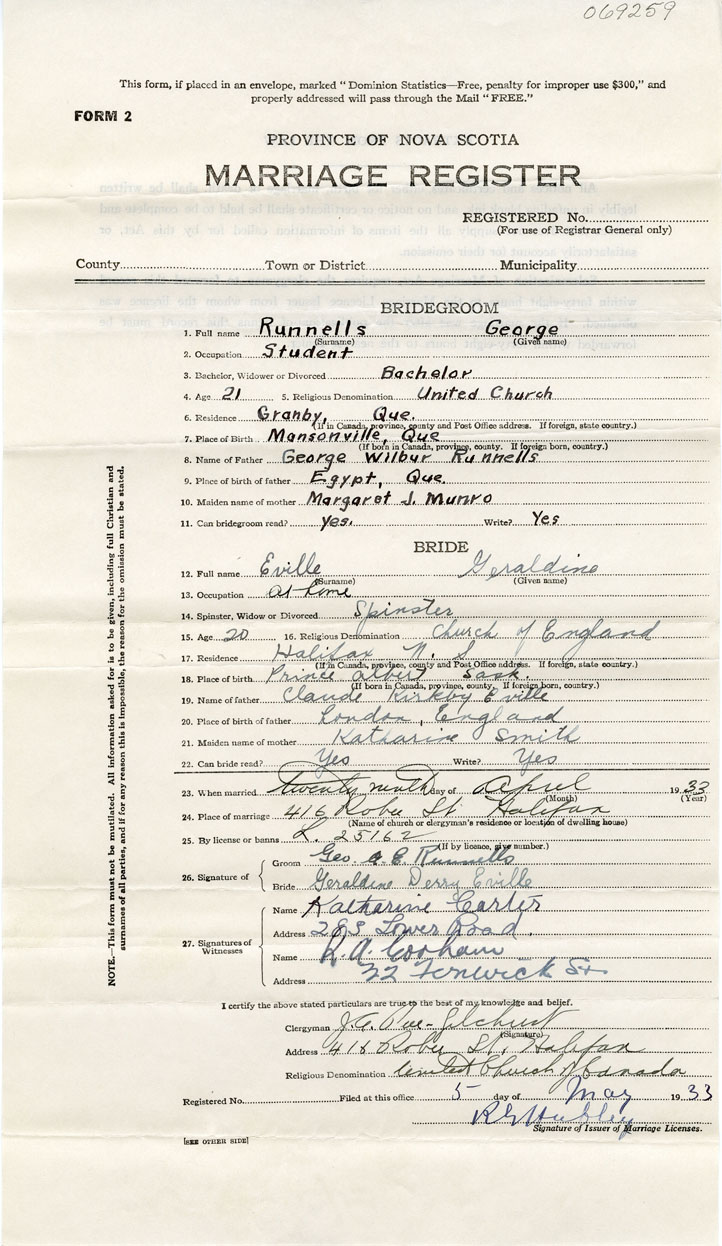 069259
This form, if placed in an envelope, marked "Dominion Statistics—Free, penalty for improper use $300," and
properly addressed will pass through the Mail "FREE."
FORM 2
PROVINCE OF NOVA SCOTIA
MARRIAGE REGISTER
REGISTERED No.
(For use of Registrar General only)
County Town or District Municipality
BRIDEGROOM
1. Full name Runnells George
(Surname) (Given name)
2. Occupation Student
3. Bachelor, Widower or Divorced Bachelor
4. Age 21 5. Religious Denomination United Church
6. Residence Granby, Que.
(If in Canada, province, county and Post Office address. If foreign, state country.)
7. Place of Birth Mansonville, Que
(If born in Canada, province, county. If foreign born, country.)
8. Name of Father George Wilbur Runnells
9. Place of birth of father Egypt, Que.
10. Maiden name of mother Margaret J. Munro
11. Can bridegroom read? yes. Write? Yes
BRIDE
12. Full name Eville Geraldine
(Surname) (Given name)
13. Occupation at home
14. Spinster, Widow or Divorced Spinster
15. Age 20 16. Religious Denomination Church of England
17. Residence Halifax N. S
(If in Canada, province, county and Post Office address. If foreign, state country.)
18. Place of birth Prince Albert Sask.
(If born in Canada, province, county, If foreign born, country.)
19. Name of father Claude Kirkby Eville
20. Place of birth of father London, England
21. Maiden name of mother Katharine Smith
22. Can bride read? Yes Write? Yes
23. When married twenty ninth day of April 1933
(Month) (Year)
24. Place of marriage 416 Robie St Halifax
(Name of church or clergyman's residence or location of dwelling house)
25. By license or banns L. 25162
(If by licence, give number.)
26. Signature of
Groom Geo. Runnells
Bride Geraldine Derry Eville
27. Signatures of
Witnesses
Name Katharine Carter
Address Tower Road.
Name
Address 22 Fenwick St
I certify the above stated particulars are true to the best of my knowledge and belief.
Clergyman
(Signature)
Address 416 Robie St, Halifax
Religious Denomination United Church of Canada
Registered No. Filed at this office 5 day of May 1933
Signature of Issuer of Marriage Licenses.
[SEE OTHER SIDE]
NOTE.—This form must not be mutilated. All information asked for is to be given, including full Christian and
surnames of all parties, and if for any reason this is impossible, the reason for the omission must be stated.